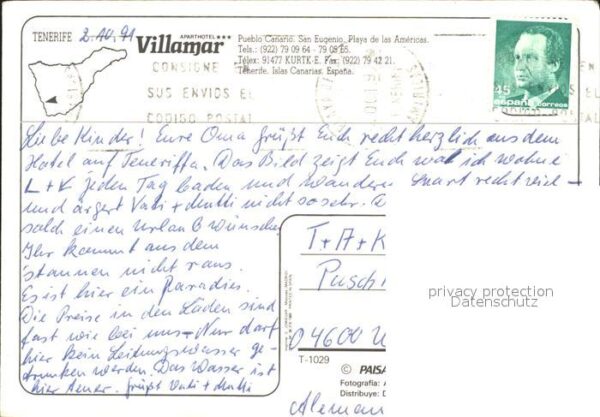 TENERIFE 2.10.91
APARTHOTEL ★★★
Villamar
Pueblo Canario. San Eugenio. Playa de las Américas.
Tels.: (922) 79 09 64 - 79 08 85.
Télex: 91477 KURTK-E. Fax: (922) 79 42 21.
Tenerife. Islas Canarias. España.
CONSIGNE EN
SUS ENVIOS EL
CODIGO POSTAL
45
españa correos
Liebe Kinder! Eure Oma grüßt Euch recht herzlich aus dem
Hotel auf Teneriffa. Das Bild zeigt Euch wo ich wohne
L + V jeden Tag baden und wandern. Spart recht reich-
und ärgert Vati + Mutti nicht so sehr.
solch einen Urlaub wünschen
Ihr kommt aus dem
staunen nicht raus.
Es ist hier ein Paradies.
Die Preise in den Läden sind
fast wie bei uns. Nur darf
hier kein Leitungswasser ge-
trunken werden. Das Wasser ist
hier teuer. grüßt Vati + Mutti
T + A + K
Pusch
04600
T-1029
© PAISA
Fotografía: A
Distribuye: D
Aleman
privacy protection
Datenschutz